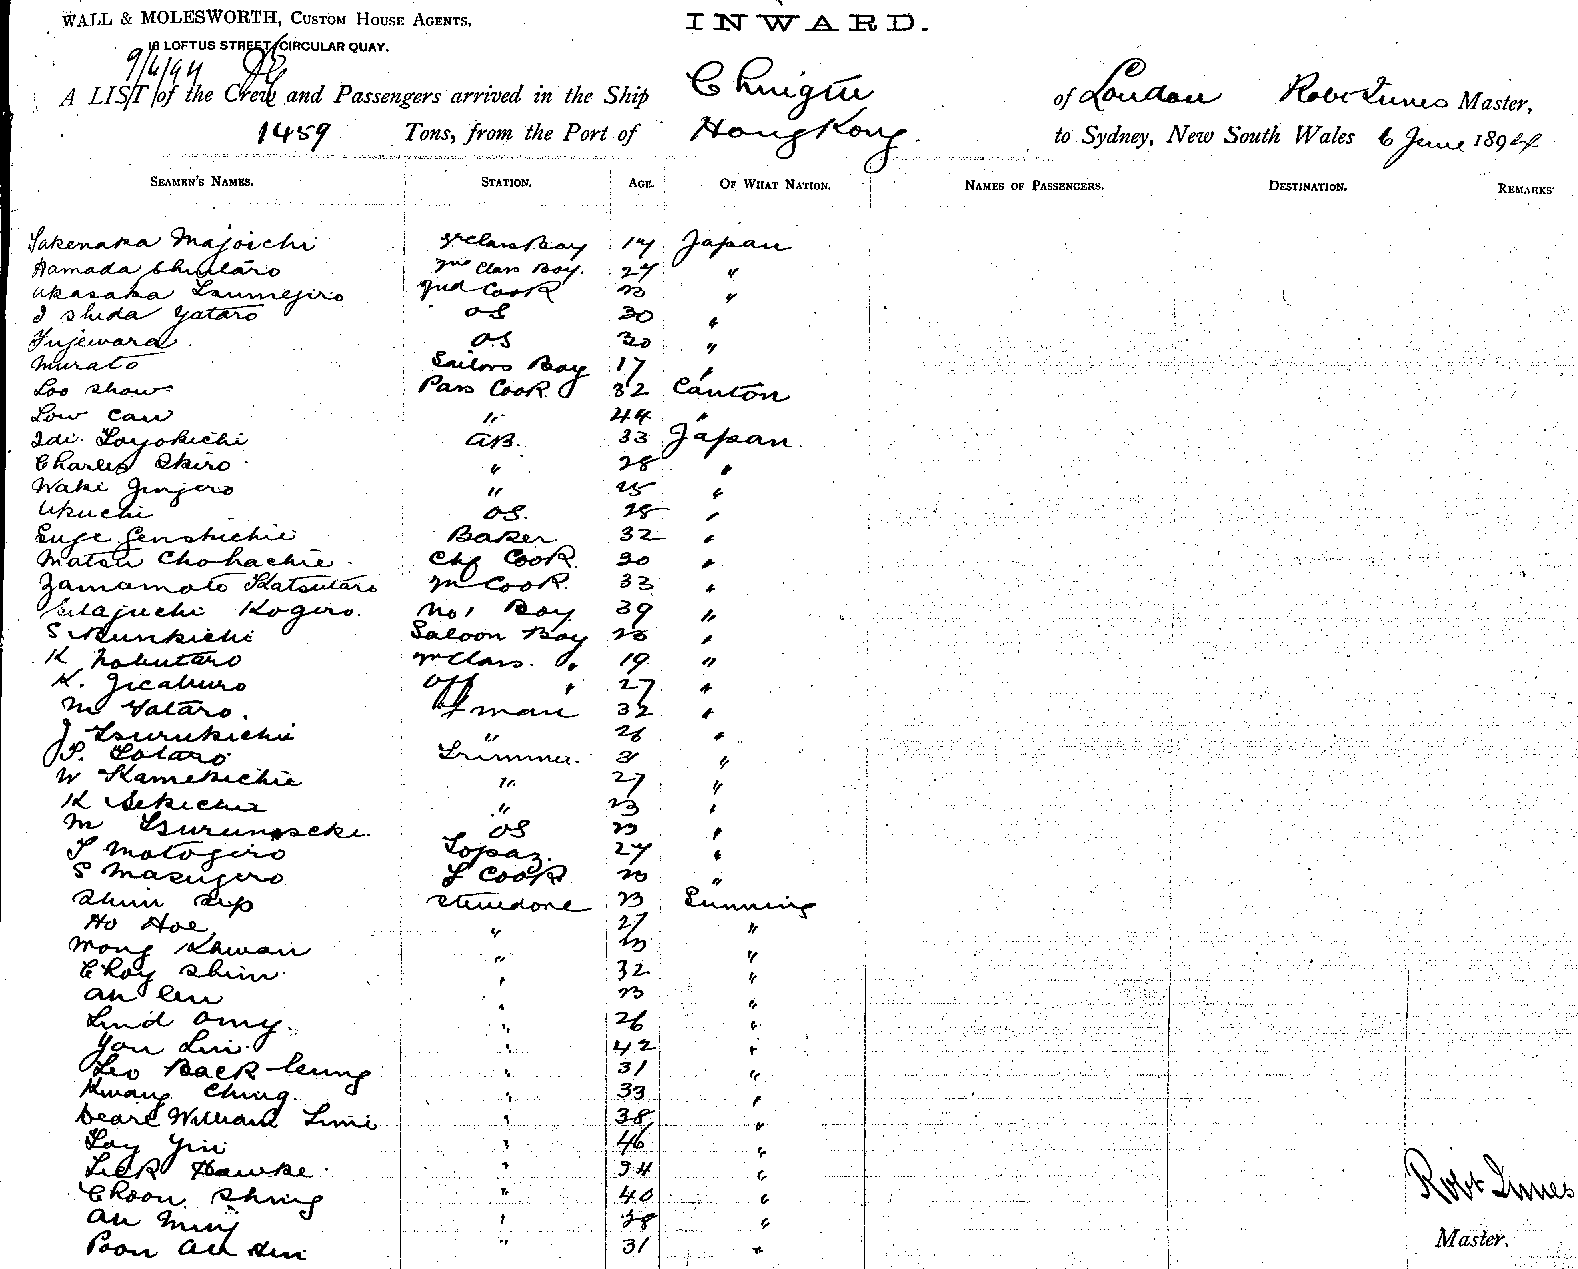 WALL & MOLESWORTH, CUSTOM HOUSE AGENTS,
INWARD.
18 LOFTUS STREET, CIRCULAR QUAY.
9/6/94
A LIST of the Crew and Passengers arrived in the Ship Chingtu of London Robt Innes Master,
1459 Tons, from the Port of Hong Kong. to Sydney, New South Wales 6 June 1894
SEAMEN'S NAMES. STATION. AGE. OF WHAT NATION. NAMES OF PASSENGERS. DESTINATION. REMARKS
Takenaka Majoichi Class Boy 17 Japan
Hamada Chutaro Class Boy. 27 "
Ukasaka Tsumejiro 2nd Cook 23 "
Ishida Yataro OS 30 "
Fujewara OS 20 "
Murato Sailors Boy 17 "
Loo Show Pass Cook 32 Canton
Low Can " 44 "
Idi Toyokichi AB. 33 Japan
Charles Skiro " 28 "
Waki Ginjero " 25 "
Ukuchi OS. 28 "
Suge Genshichie Baker 32 "
Matsu Chohachie Chf Cook 30 "
Yamamoto Katsutaro Cook 33 "
Kogiro. No 1 Boy 39 "
S Bunkichi Saloon Boy 23 "
K Nobutaro Class. " 19 "
K. Jicaburo Off " 27 "
M Yataro. Fman 32 "
J Tsurukichi " 26 "
P. Sotaro Trimmer. 31 "
W Kamekichie " 27 "
K Sekichie " 23 "
M OS 23 "
T Motogiro Topaz. 27 "
S Masugero F Cook 23 "
Shim Sip Stevedore 23 Sunning
Ho Hoe " 27 "
Mong Khwan " 23 "
Choy Shim " 32 "
Ah Len " 23 "
Lind Omy. " 26 "
You Lin. " 42 "
Leo Back Leung " 31 "
Kwang Ching. " 33 "
William Limi " 38 "
Lay Yin " 46 "
Lick Hawke " 34 "
Choon Shing " 40 "
Ah Ming " 38 "
Poon Ah " 31 "
Robt Innes
Master.